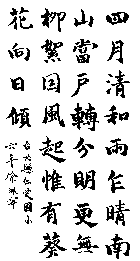 四月清和雨乍晴南
山當戶轉分明更無
柳絮因風起惟有葵
花向日傾
國小
六年